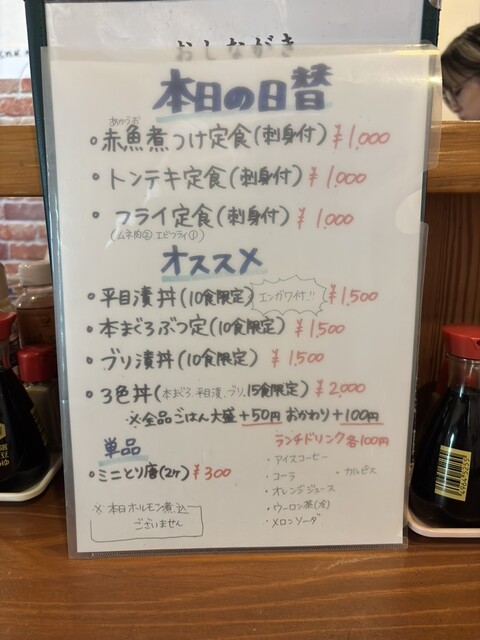 おしながき
本日の日替
あかうお
・赤魚煮つけ定食(刺身付) ¥1,000
・トンテキ定食(刺身付) ¥1,000
・フライ定食(刺身付) ¥1,000
(ムネ肉② エビフライ①)
オススメ
・平目漬丼(10食限定) エンガワ付!! ¥1,500
・本まぐろぶつ定(10食限定) ¥1,500
・ブリ漬丼(10食限定) ¥1,500
・3色丼(本まぐろ、平目漬、ブリ、15食限定) ¥2,000
※全品ごはん大盛+50円 おかわり+100円
単品
・ミニとり唐(2ヶ) ¥300
※本日ホルモン煮込
ございません
ランチドリンク各100円
・アイスコーヒー
・コーラ ・カルピス
・オレンジジュース
・ウーロン茶(冷)
・メロンソーダ